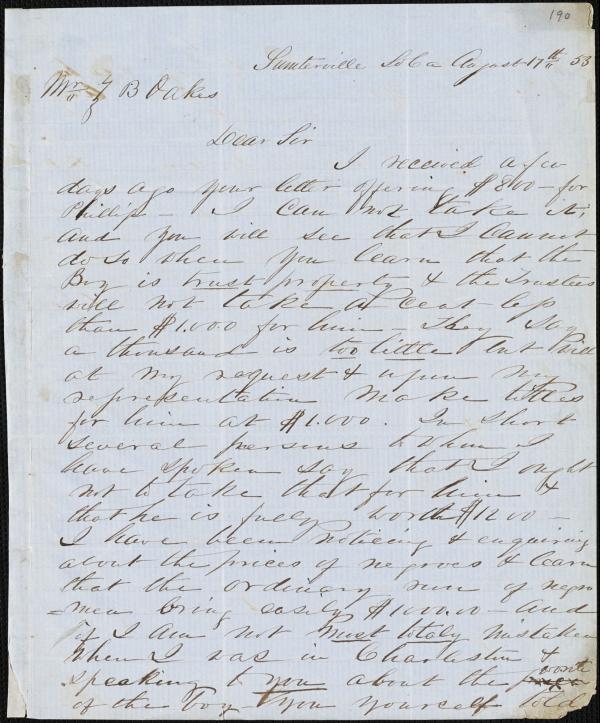 190
Sumterville So Ca August 17th 53
Mr Z B Oakes
Dear Sir
I received a few
days ago your letter offering $800 - for
Phillip - I can not take it;
and you will see that I cannot
do so when you learn that the
Boy is trust property & the Trustees
will not take a cent less
than $1.000 for him - They say
a thousand is too little but will
at my request & upon my
representation make titles
for him at $1.000. In short
several persons to whom I
have spoken say that I ought
not to take that for him &
that he is fully worth $1200 -
I have been noticing & enquiring
about the prices of negroes & learn
that the ordinary run of negro
=men bring easily $1000.00 - And
if I am not must totaly mistaken
when I was in Charleston &
speaking to you about the worth
of the boy you yourself told